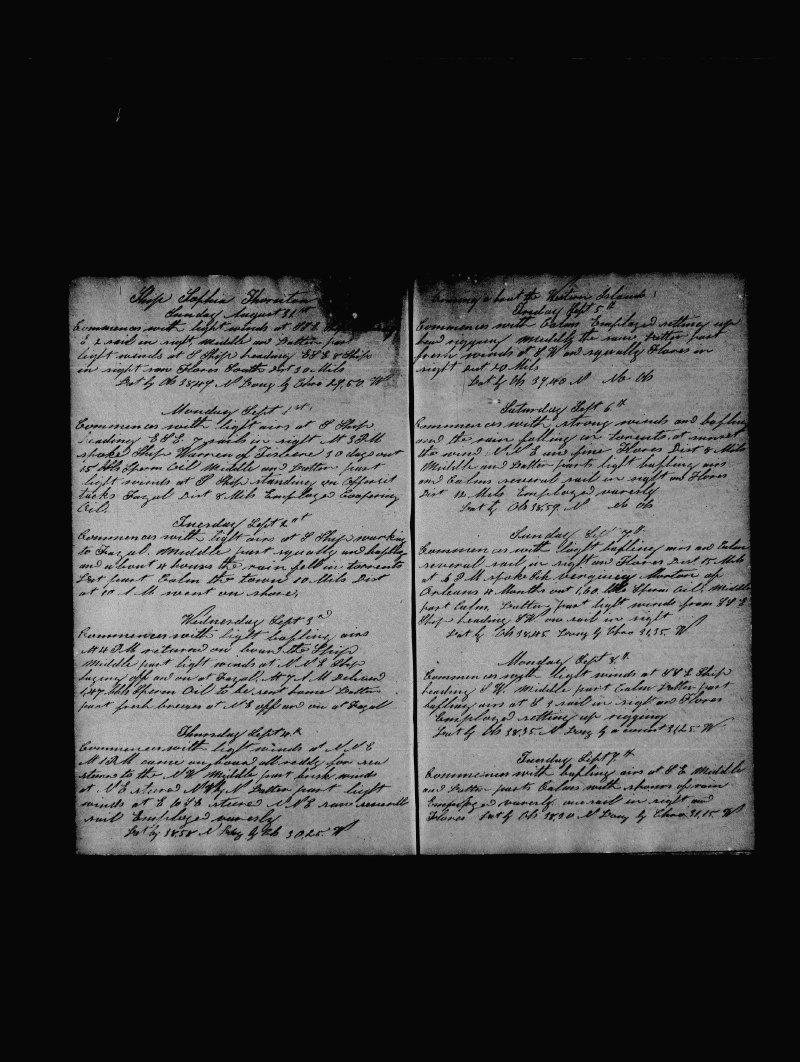 Ship Sophia Thornton
Sunday August 31st
Commences with light winds at SSE Ship
E 2 sail in sight Middle and Latter part
light winds at S Ship heading ESE 8 Ship
in sight saw Flores South Dist 30 Mils
Lat by Ob 38,49 N Long by Chro 29,50 W
Monday Sept 1st
Commences with light airs at S Ship
heading ESE 7 sails in sight At 3 PM
spoke Ship Warren of 30 days out
15 bbls Sperm Oil Middle and Latter part
light winds at S Ship standing on Opposit
tacks Fayal Dist 8 Mils Employed Coopering
Oil
Tuesday Sept 2nt
Commences with light airs at S Ship working
to Fayal. Middle part squally and bafling
and about 4 hours the rain fell in torrents
Last part Calm the town 10 Mils Dist
at 10 A M went on shore,
Wednesday Sept 3rd
Commences with light bafling airs
At 4 P.M returned on board the Ship
Middle part light winds at N.N.E Ship
laying off and on at Fayal. At 7 A.M Delivered
147 bbls Sperm Oil to be sent home Latter
part fresh breeses at N E off and on at Fayal
Thursday Sept 4th
Commences with light winds at N.N.E
At 1 P.M came on board all redly for sea
stered to the N W Middle part brisk winds
at N.E stered N by N Latter part light
winds at E to S E stered N.N.E saw severall
sail Employed varesly
Lat by 38.58 N Long by Ob 30,25 W
Cruising about the Western Islands
Sept 5th
Commences with Calm Employed setting up
head rigging Middle the same Latter part
fresh winds at S.W and squally Flores in
sight Dist 20 Mils
Lat by Ob 39,40 N No Ob
Saturday Sept 6th
Commences with strong winds and bafling
and the rain falling in torents. at sunset
the wind N.N.E and fine Flores Dist 8 Mils
Middle and Latter parts light bafling airs
and Calms several sail in sight and Flores
Dist 12 Mils Employed varesly
Lat by Ob 38.59. N No Ob
Sunday Sept 7th
Commences with light bafling airs and Calm
several sail in sight and Flores Dist 15 Mils
at 6 P.M spoke Morton of
Orleans 4 Months out 160 bbls Sperm Oil. Middle
part Calm, Latter part light winds from SSE
Ship heading S W one sail in sight
Lat by Ob 38.45 Long by Chro 31,35. W
Monday Sept 8th
Commences with light winds at SSE Ship
heading S W. Middle part Calm Latter part
bafling airs at S 3 sail in sight and Flores
Employed setting up rigging
Lat by Ob 38.35. N Long by account 31,25. W
Tuesday Sept 9th
Commences with bafling airs at S E Middle
and Latter parts Calms with showers of rain
Employed varesly one sail in sight and
Flores Lat by Ob 38.30 N Long by Chro 31,15. W